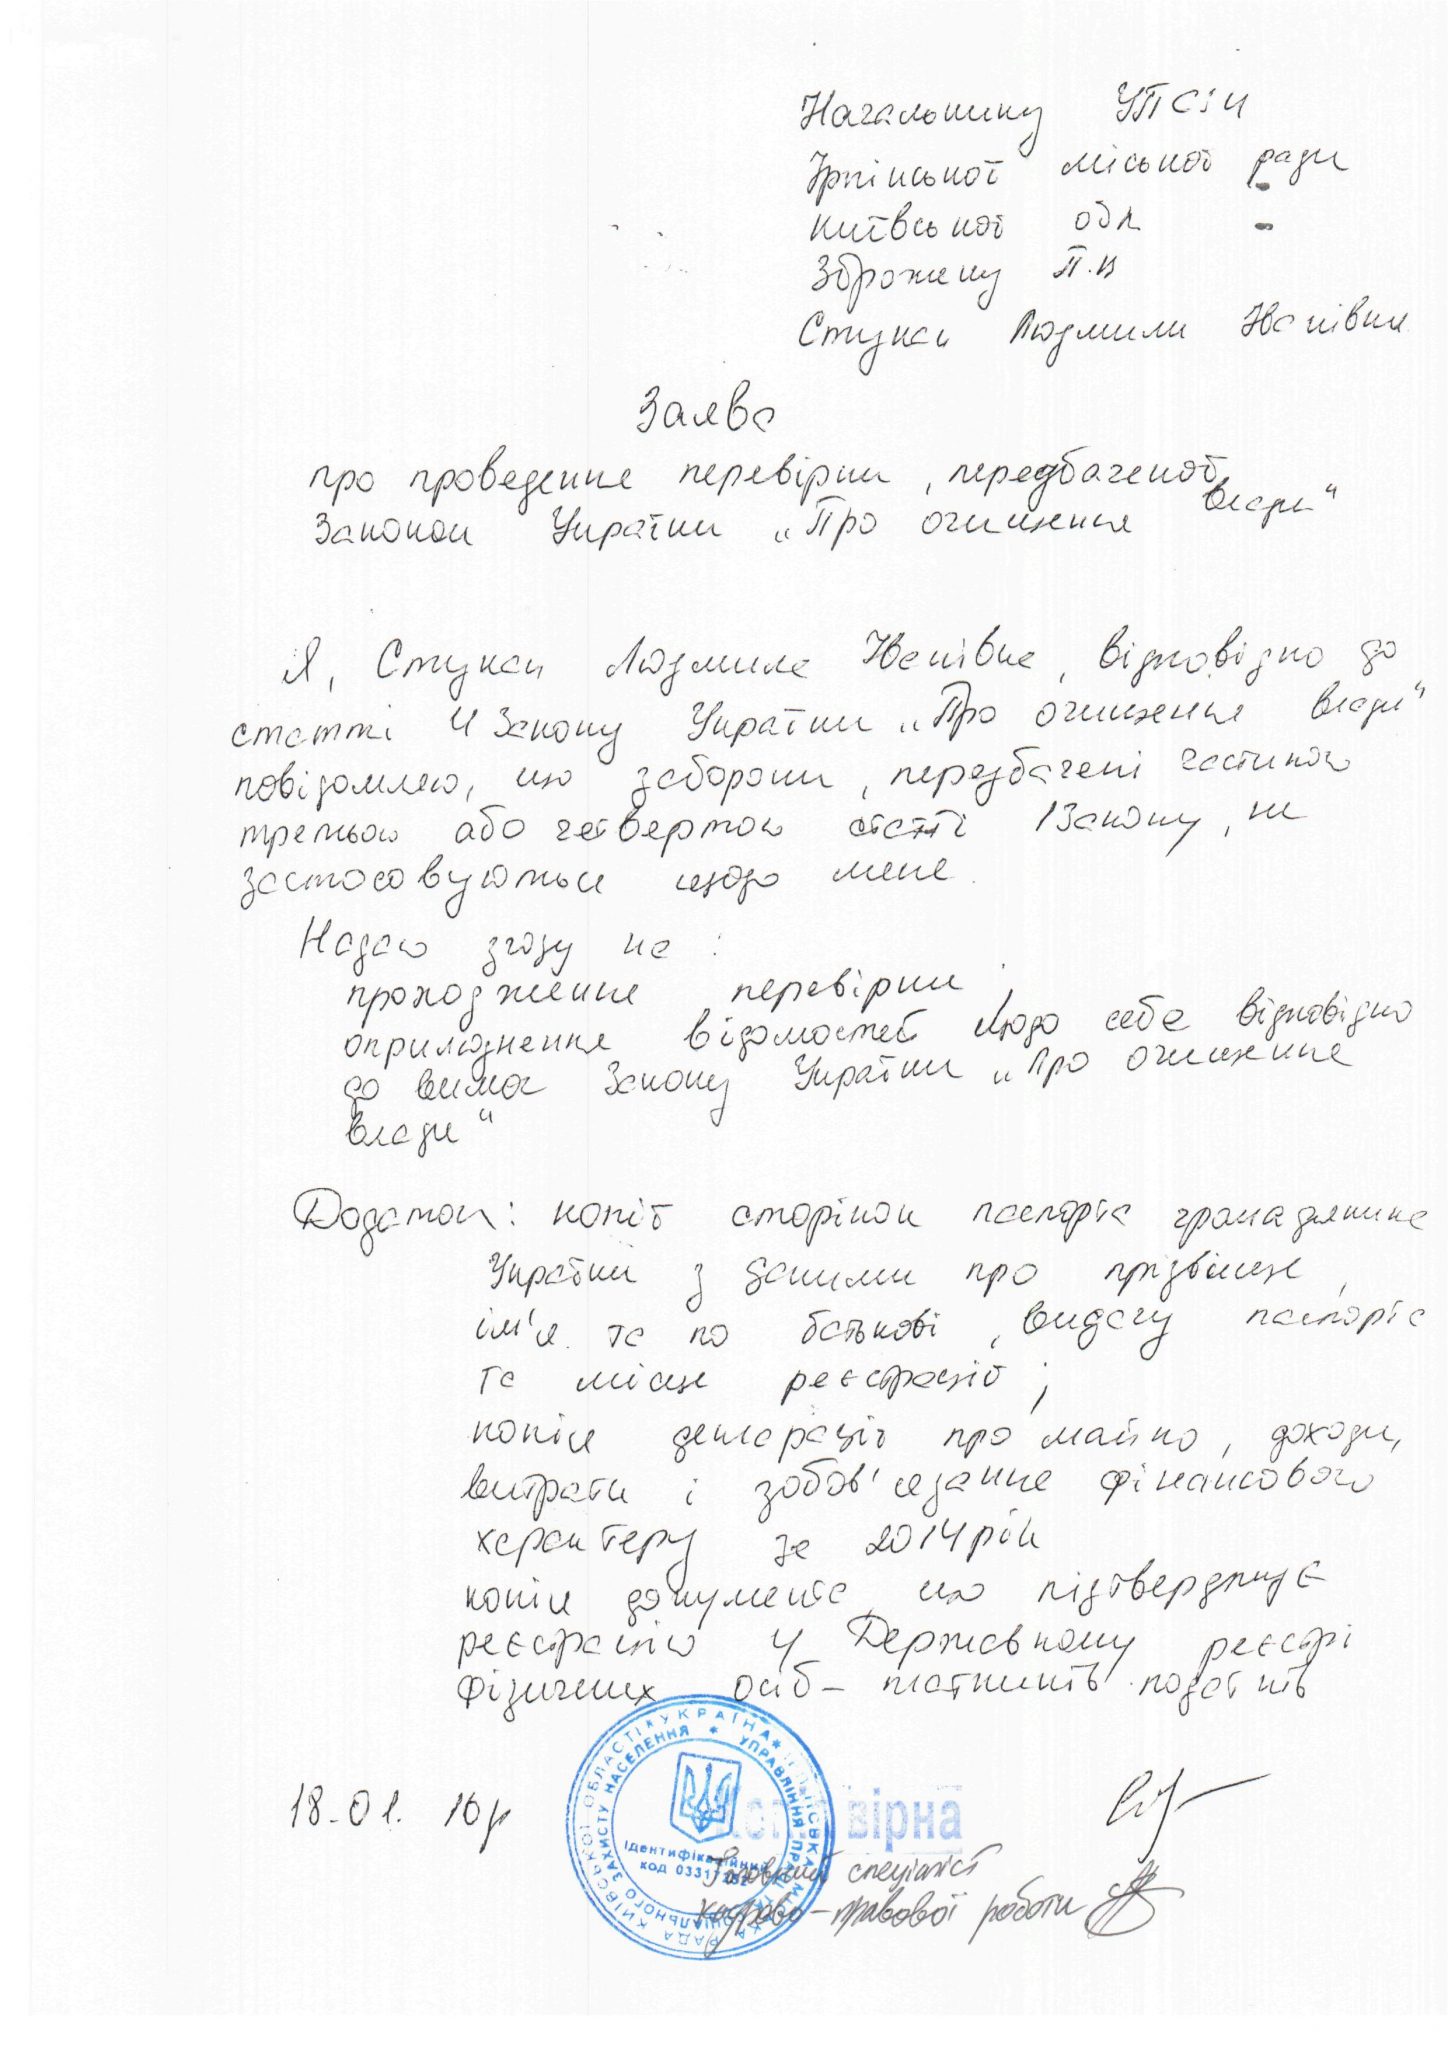 Начальнику УПСЗН
Ірпінської міської ради
Київської обл
Зброжеку П.В
Стукси Людмили Іванівни
Заява
про проведення перевірки, передбаченої
Законом України „Про очищення влади"
Я, Стукси Людмила Іванівна, відповідно до
статті 4 Закону України „Про очищення влади"
повідомляю, що заборони, передбачені частиною
третьою або четвертою статті 1 Закону, не
застосовуються щодо мене.
Надаю згоду на:
проходження перевірки;
оприлюднення відомостей щодо себе відповідно
до вимог Закону України „Про очищення
влади"
Додаток: копії сторінок паспорта громадянина
України з даними про прізвище,
ім'я та по батькові, видачу паспорта
та місце реєстрації;
копія декларації про майно, доходи,
витрати і зобов'язання фінансового
характеру за 2014 рік
копія документа, що підтверджує
реєстрацію у Державному реєстрі
фізичних осіб – платників податків
18.01.16р
Копія вірна
Головний спеціаліст
кадрово-правової роботи
УКРАЇНА * ІРПІНСЬКА МІСЬКА РАДА КИЇВСЬКОЇ ОБЛАСТІ *
УПРАВЛІННЯ ПРАЦІ ТА СОЦІАЛЬНОГО ЗАХИСТУ НАСЕЛЕННЯ *
Ідентифікаційний
код